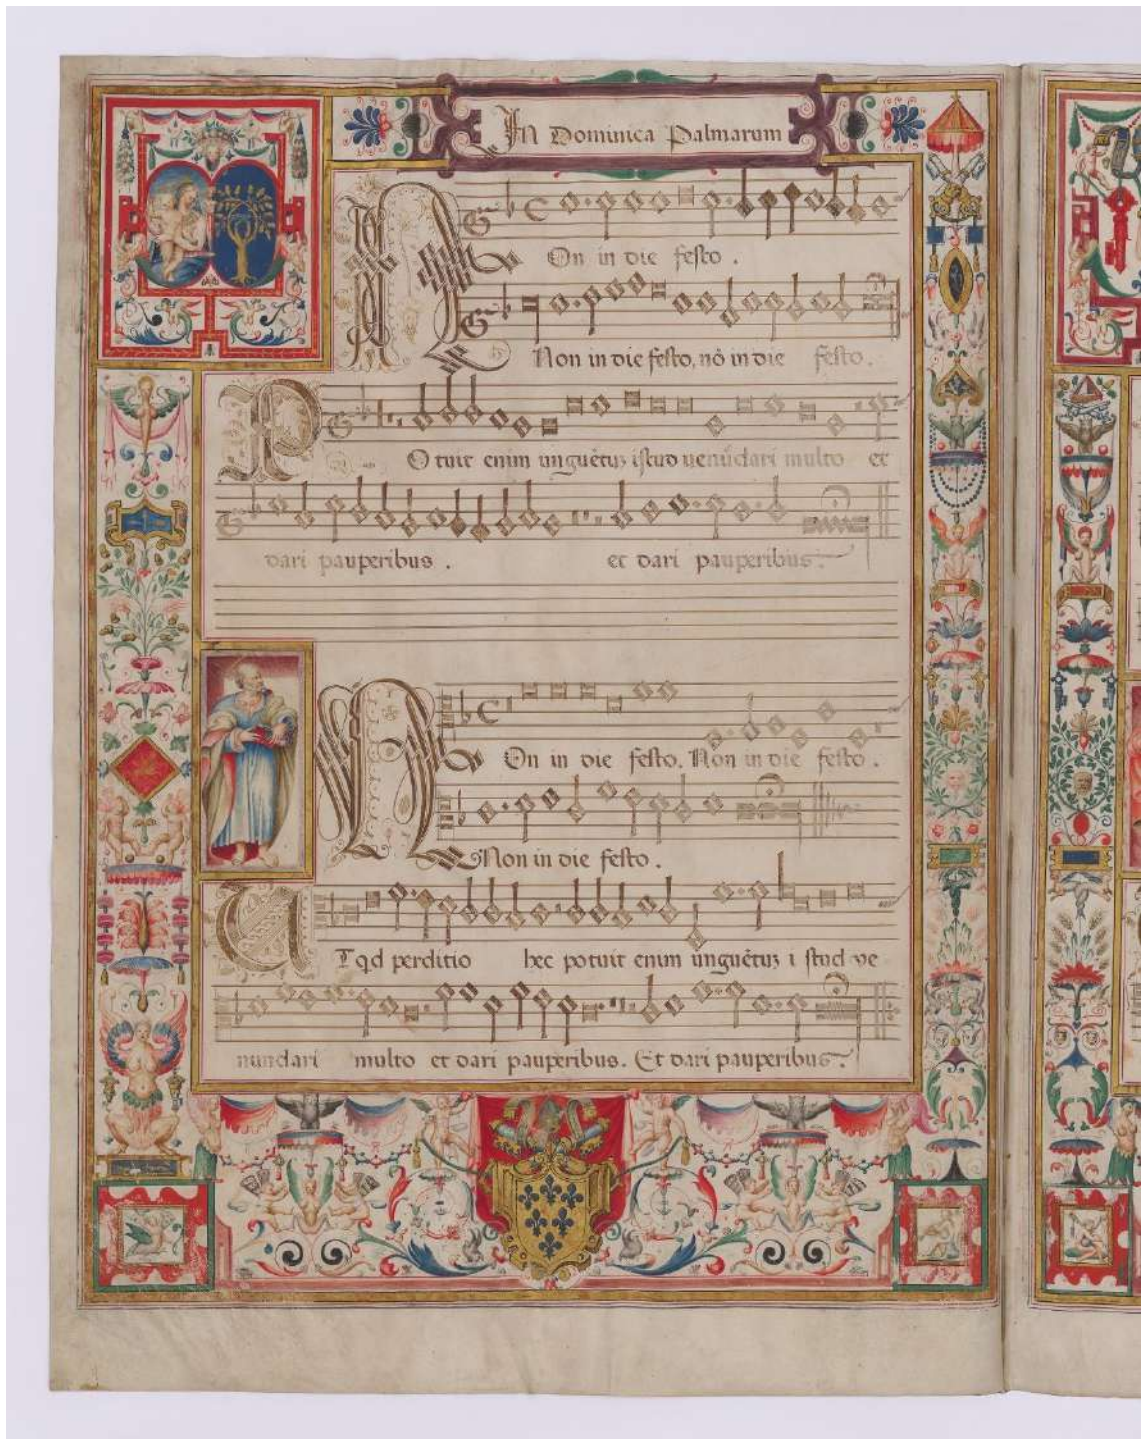 In Dominica Palmarum
NOn in die festo.
Non in die festo, nō in die festo.
POtuit enim unguētuʒ istud uenūdari multo et
dari pauperibus. et dari pauperibus.
NOn in die festo. Non in die festo.
Non in die festo.
UT qd perditio hec potuit enim unguētuʒ i stud ve
nundari multo et dari pauperibus. Et dari pauperibus.